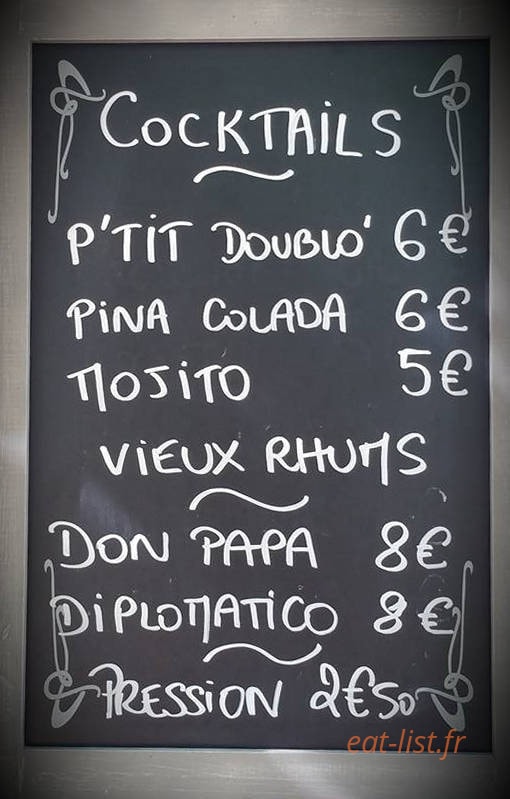 COCKTAILS
P'TIT DOUBLO' 6€
PINA COLADA 6€
MOJITO 5€
VIEUX RHUMS
DON PAPA 8€
DIPLOMATICO 8€
PRESSION 2€50
eat-list.fr